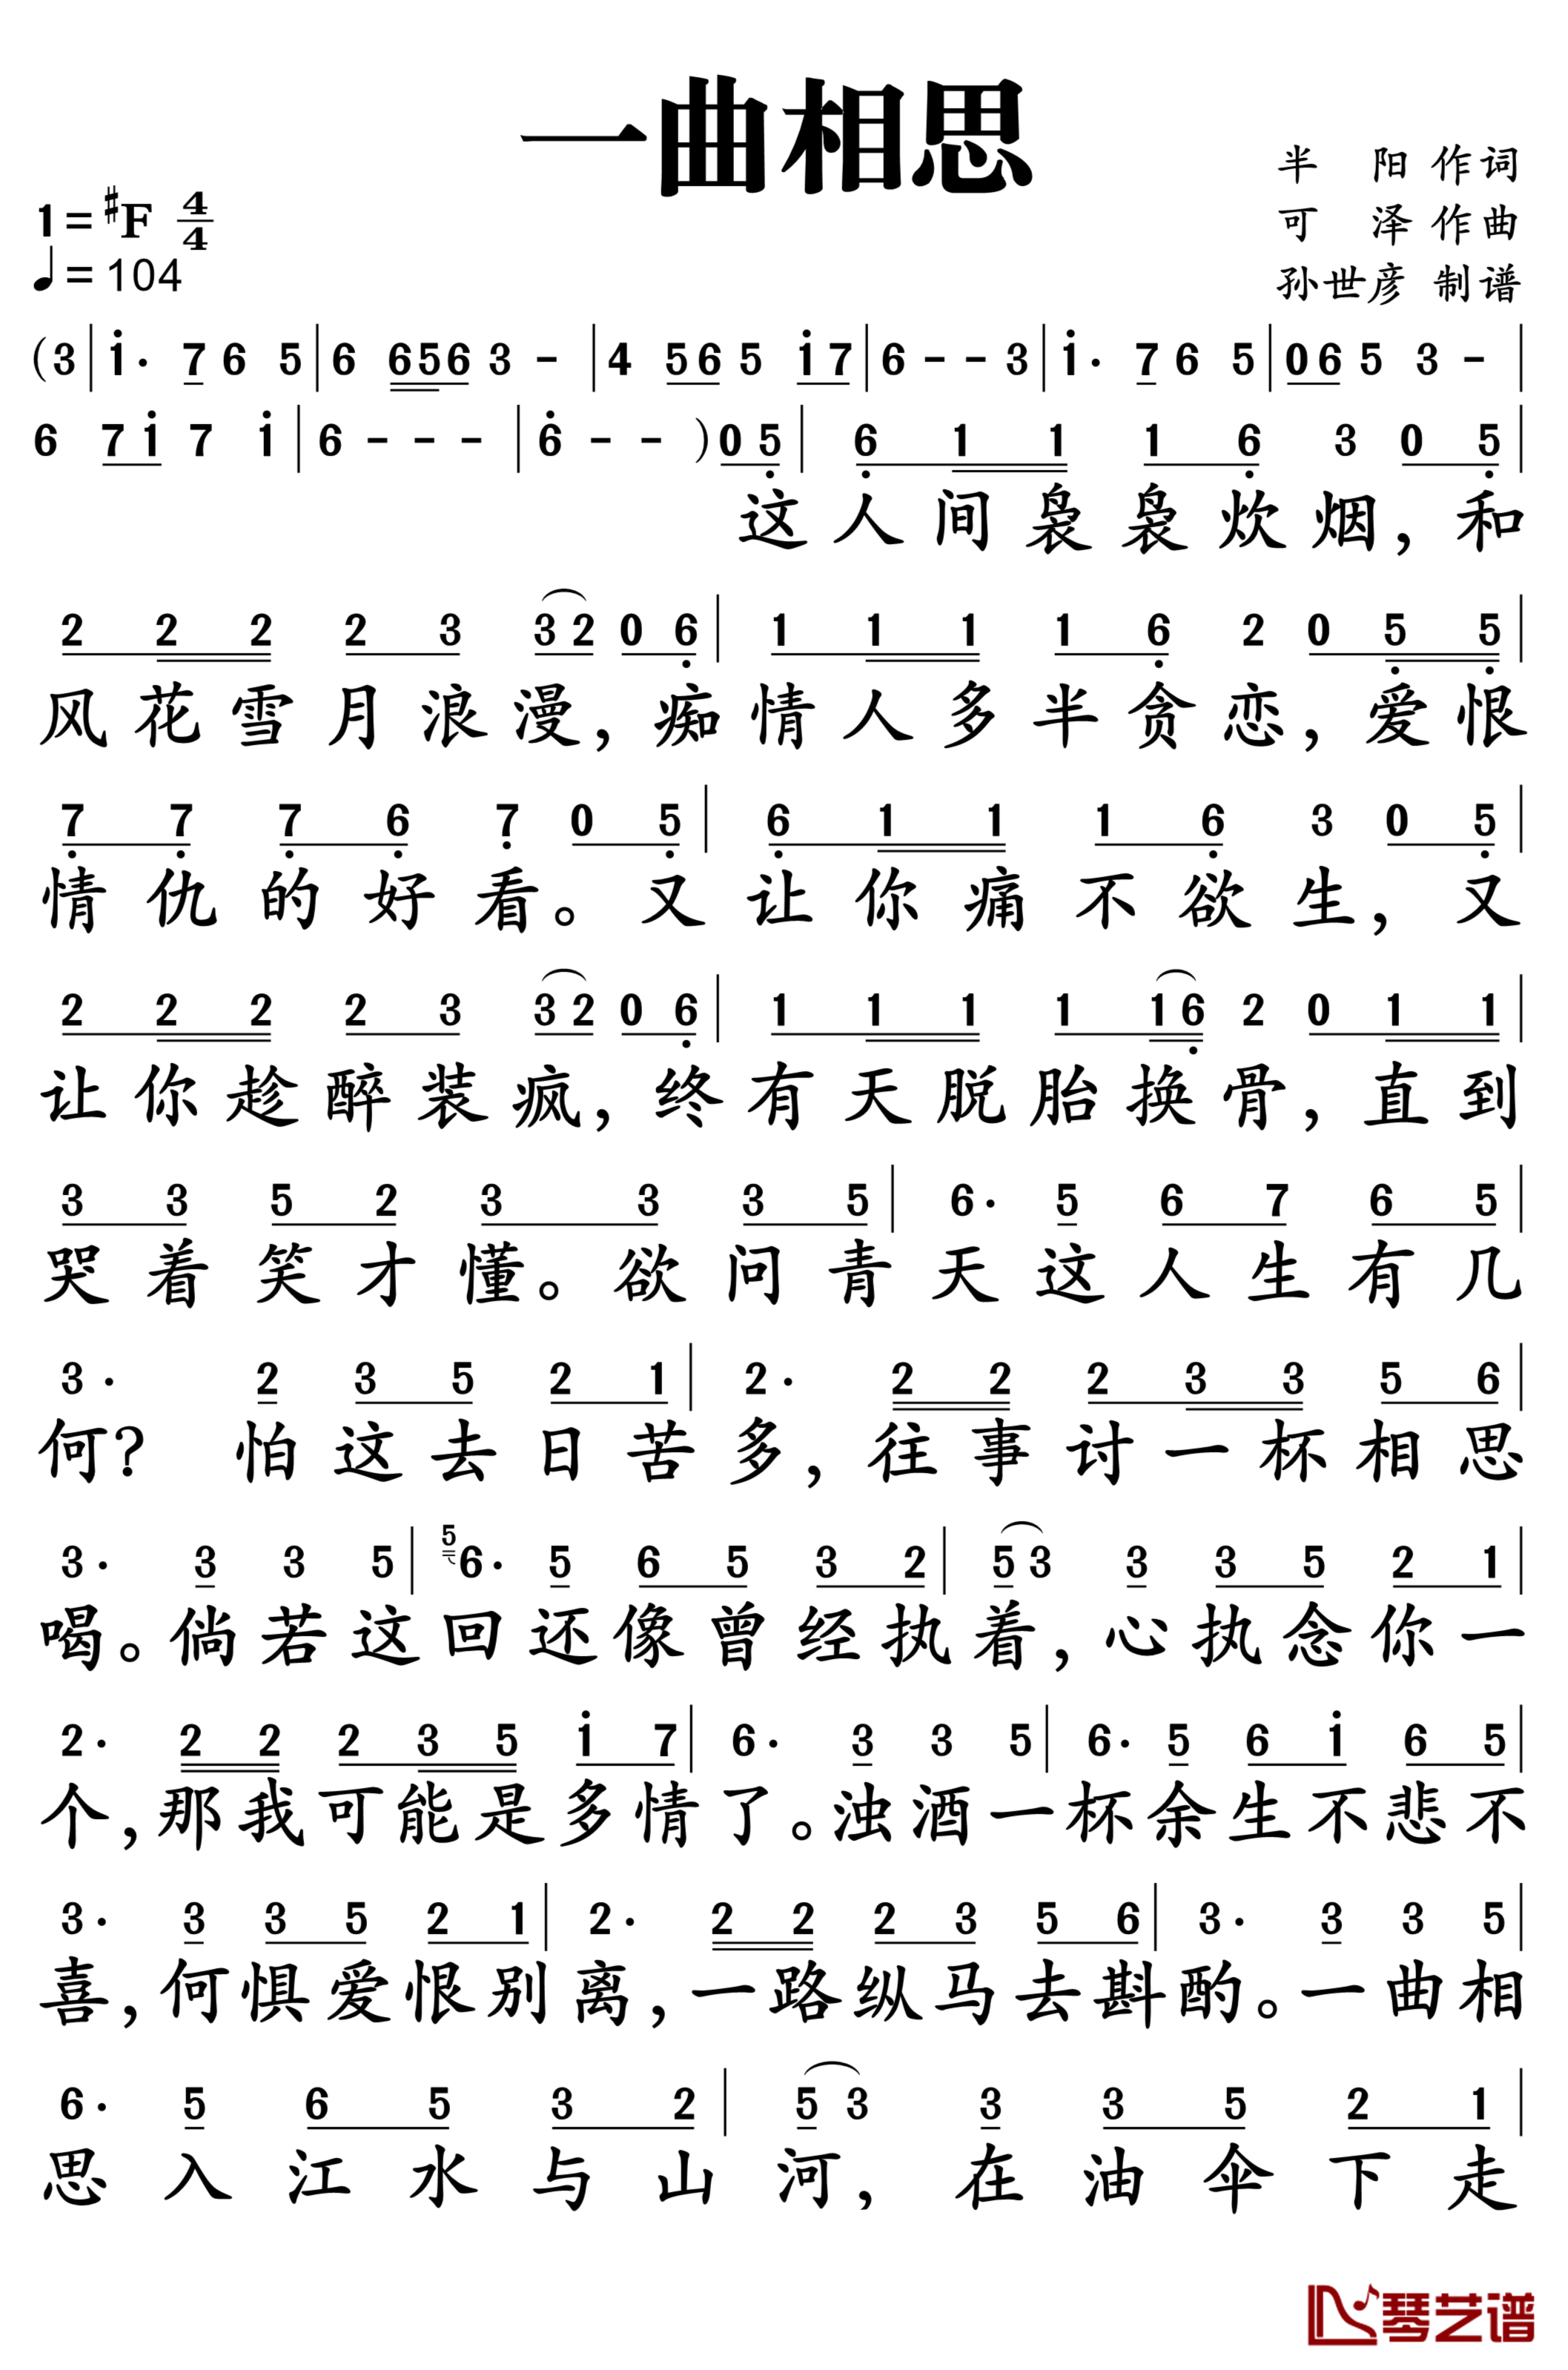 一曲相思
半 阳 作词
1=#F 4/4
可 泽 作曲
♩=104
孙世彦 制谱
(3|i· 7 6 5|6 656 3 -|4 56 5 i7|6 - - 3|i· 7 6 5|06 5 3 -|
6 7i 7 i|6 - - -|6̇ - - )05̣|6̣ 1 1 1 6̣ 3 0 5̣|
这人间袅袅炊烟，和
2 2 2 2 3 32 0 6̣|1 1 1 1 6̣ 2 0 5̣ 5̣|
风花雪月浪漫，痴情人多半贪恋，爱恨
7̣ 7̣ 7̣ 6̣ 7̣ 0 5̣|6̣ 1 1 1 6̣ 3 0 5̣|
情仇的好看。又让你痛不欲生，又
2 2 2 2 3 32 0 6̣|1 1 1 1 16̣ 2 0 1 1|
让你趁醉装疯，终有天脱胎换骨，直到
3 3 5 2 3 3 3 5|6· 5 6 7 6 5|
哭着笑才懂。欲问青天这人生有几
3· 2 3 5 2 1|2· 2 2 2 3 3 5 6|
何？怕这去日苦多，往事讨一杯相思
3· 3 3 5|5 6· 5 6 5 3 2|53 3 3 5 2 1|
喝。倘若这回还像曾经执着，心执念你一
2· 2 2 2 3 5 i 7|6· 3 3 5|6· 5 6 i 6 5|
个，那我可能是多情了。浊酒一杯余生不悲不
3· 3 3 5 2 1|2· 2 2 2 3 5 6|3· 3 3 5|
喜，何惧爱恨别离，一路纵马去斟酌。一曲相
6· 5 6 5 3 2|53 3 3 5 2 1|
思入江水与山河，在油伞下走
琴艺谱